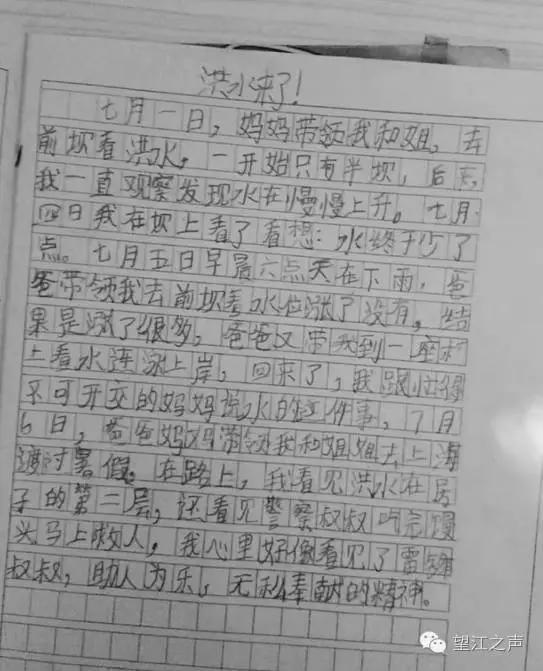 洪水来了!
七月一日，妈妈带领我和姐，去
前坝看洪水，一开始只有半坝，后来，
我一直观察发现水在慢慢上升。七月
四日我在坝上看了看想：水终于少了
点。七月五日早晨六点天在下雨，爸
爸带领我去前坝看水位涨了没有，结
果是涨了很多，爸爸又带我到一座桥
上看水连涨上岸，回来了，我跟忙得
不可开交的妈妈说水的这件事，7月
6日，爸爸妈妈带领我和姐姐去上海
渡过暑假。在路上，我看见洪水在房
子的第二层，还看见警察叔叔吃完馒
头马上救人，我心里好像看见了雷锋
叔叔，助人为乐，无私奉献的精神。
望江之声